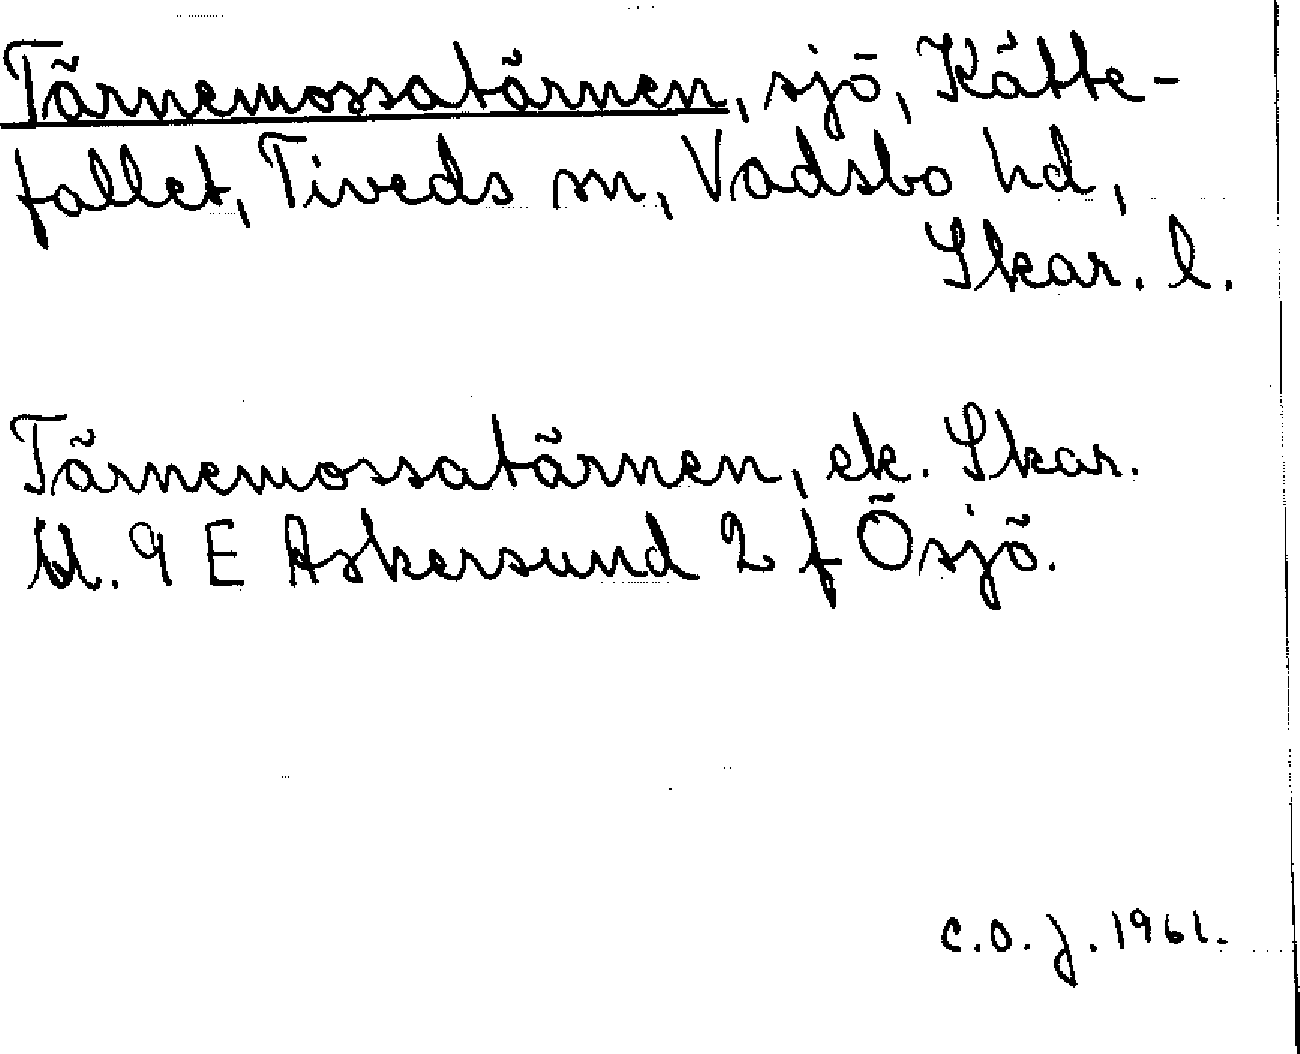 Tärnemossatärnen, sjö, Kåtte-
fallet, Tiveds sn, Vadsbo hd,
Skar. l.
Tärnemossatärnen, ek. Skar.
bl. 9 E Askersund 2 f Ösjö.
C.O.J. 1961.